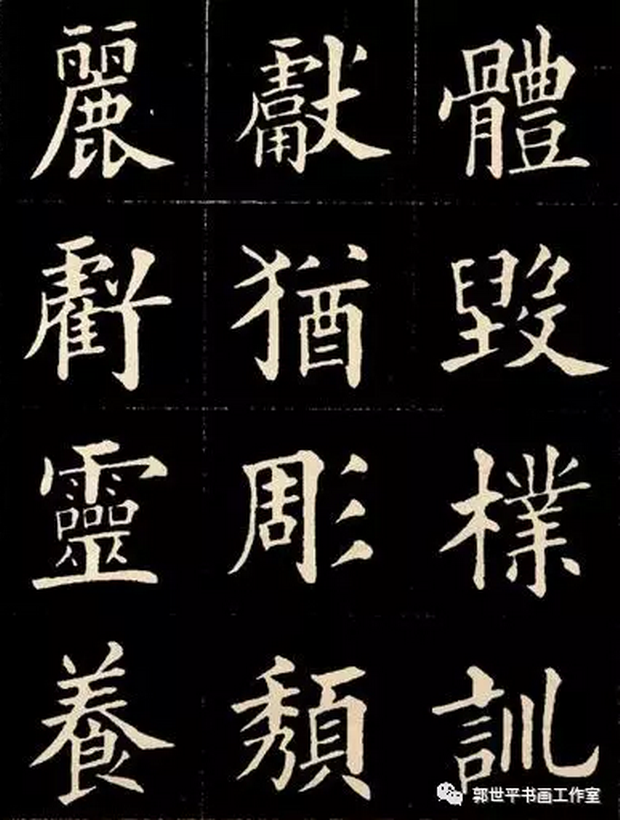 體毀樸訓
獻猶彫頽
麗虧靈養
郭世平书画工作室